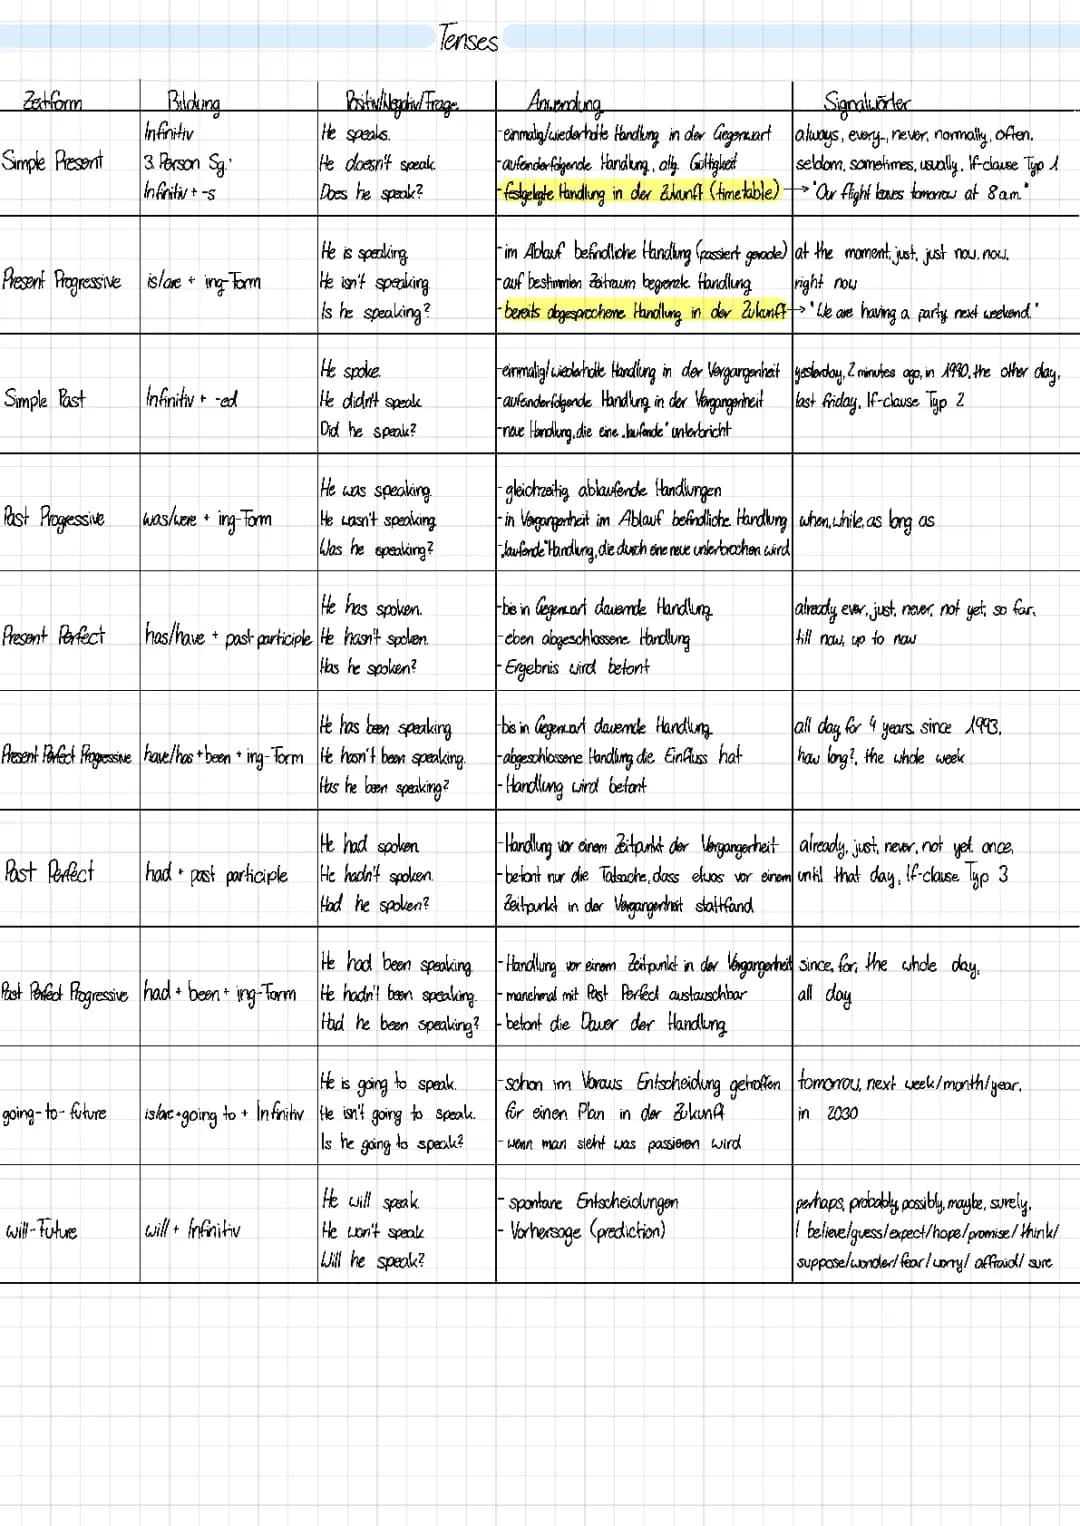 Tenses
Zeitform Bildung Positiv/Negativ/Frage Anwendung Signalwörter
Infinitiv He speaks. -einmalig/wiederholte Handlung in der Gegenwart always, every-, never, normally, often,
Simple Present 3. Person Sg.: He doesn't speak. -aufeinderfolgende Handlung, allg. Gültigkeit seldom, sometimes, usually, If-clause Typ 1
Infinitiv + -s Does he speak? -festgelegte Handlung in der Zukunft (timetable) → "Our flight leaves tomorrow at 8am."
He is speaking. -im Ablauf befindliche Handlung (passiert gerade) at the moment, just, just now, now,
Present Progressive is/are + ing-Form He isn't speaking -auf bestimmten Zeitraum begrenzte Handlung right now
Is he speaking? -bereits abgesprochene Handlung in der Zukunft → "We are having a party next weekend."
He spoke. -einmalig/wiederholte Handlung in der Vergangenheit yesterday, 2 minutes ago, in 1990, the other day,
Simple Past Infinitiv + -ed He didn't speak -aufeinderfolgende Handlung in der Vergangenheit last friday, If-clause Typ 2
Did he speak? -neue Handlung, die eine „laufende" unterbricht
He was speaking. -gleichzeitig ablaufende Handlungen
Past Progessive was/were + ing-Form He wasn't speaking -in Vergangenheit im Ablauf befindliche Handlung when, while, as long as
Was he speaking? -„laufende" Handlung, die durch eine neue unterbrochen wird
He has spoken. -bis in Gegenwart dauernde Handlung already, ever, just, never, not yet, so far,
Present Perfect has/have + past participle He hasn't spoken. -eben abgeschlossene Handlung till now, up to now
Has he spoken? -Ergebnis wird betont
He has been speaking -bis in Gegenwart dauernde Handlung all day, for 4 years, since 1993,
Present Perfect Progressive have/has + been + ing-Form He hasn't been speaking. -abgeschlossene Handlung die Einfluss hat how long?, the whole week
Has he been speaking? -Handlung wird betont
He had spoken -Handlung vor einem Zeitpunkt der Vergangenheit already, just, never, not yet, once,
Past Perfect had + past participle He hadn't spoken. -betont nur die Tatsache, dass etwas vor einem until that day, If-clause Typ 3
Had he spoken? Zeitpunkt in der Vergangenheit stattfand
He had been speaking -Handlung vor einem Zeitpunkt in der Vergangenheit since, for, the whole day,
Past Perfect Progressive had + been + ing-Form He hadn't been speaking. -manchmal mit Past Perfect austauschbar all day
Had he been speaking? -betont die Dauer der Handlung
He is going to speak. -schon im Voraus Entscheidung getroffen tomorrow, next week/month/year,
going-to-future is/are+going to + Infinitiv He isn't going to speak. für einen Plan in der Zukunft in 2030
Is he going to speak? -wenn man sieht was passieren wird
He will speak. - spontane Entscheidungen perhaps, probably, possibly, maybe, surely,
will-Future will + infinitiv He won't speak - Vorhersage (prediction) I believe/guess/expect/hope/promise/think/
Will he speak? suppose/wonder/fear/worry/ affraid/ sure